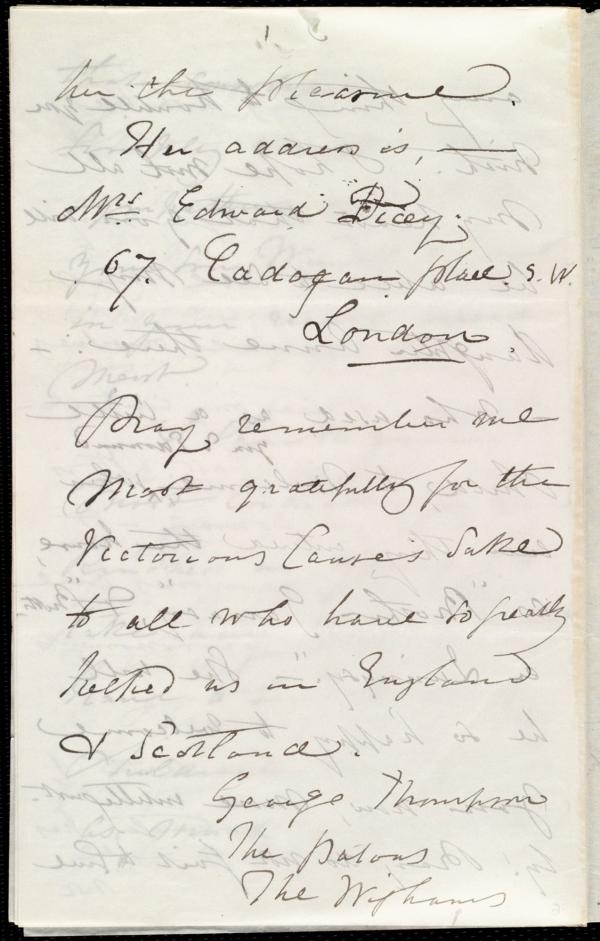 her the pleasure.
Her address is, —
Mrs Edward Dicey,
67. Cadogan place. S. W.
London.
Pray remember me
most gratefully for the
Victorious Cause's Sake
to all who have so greatly
helped us in England
& Scotland.
George Thompson
The Patons
The Wighams